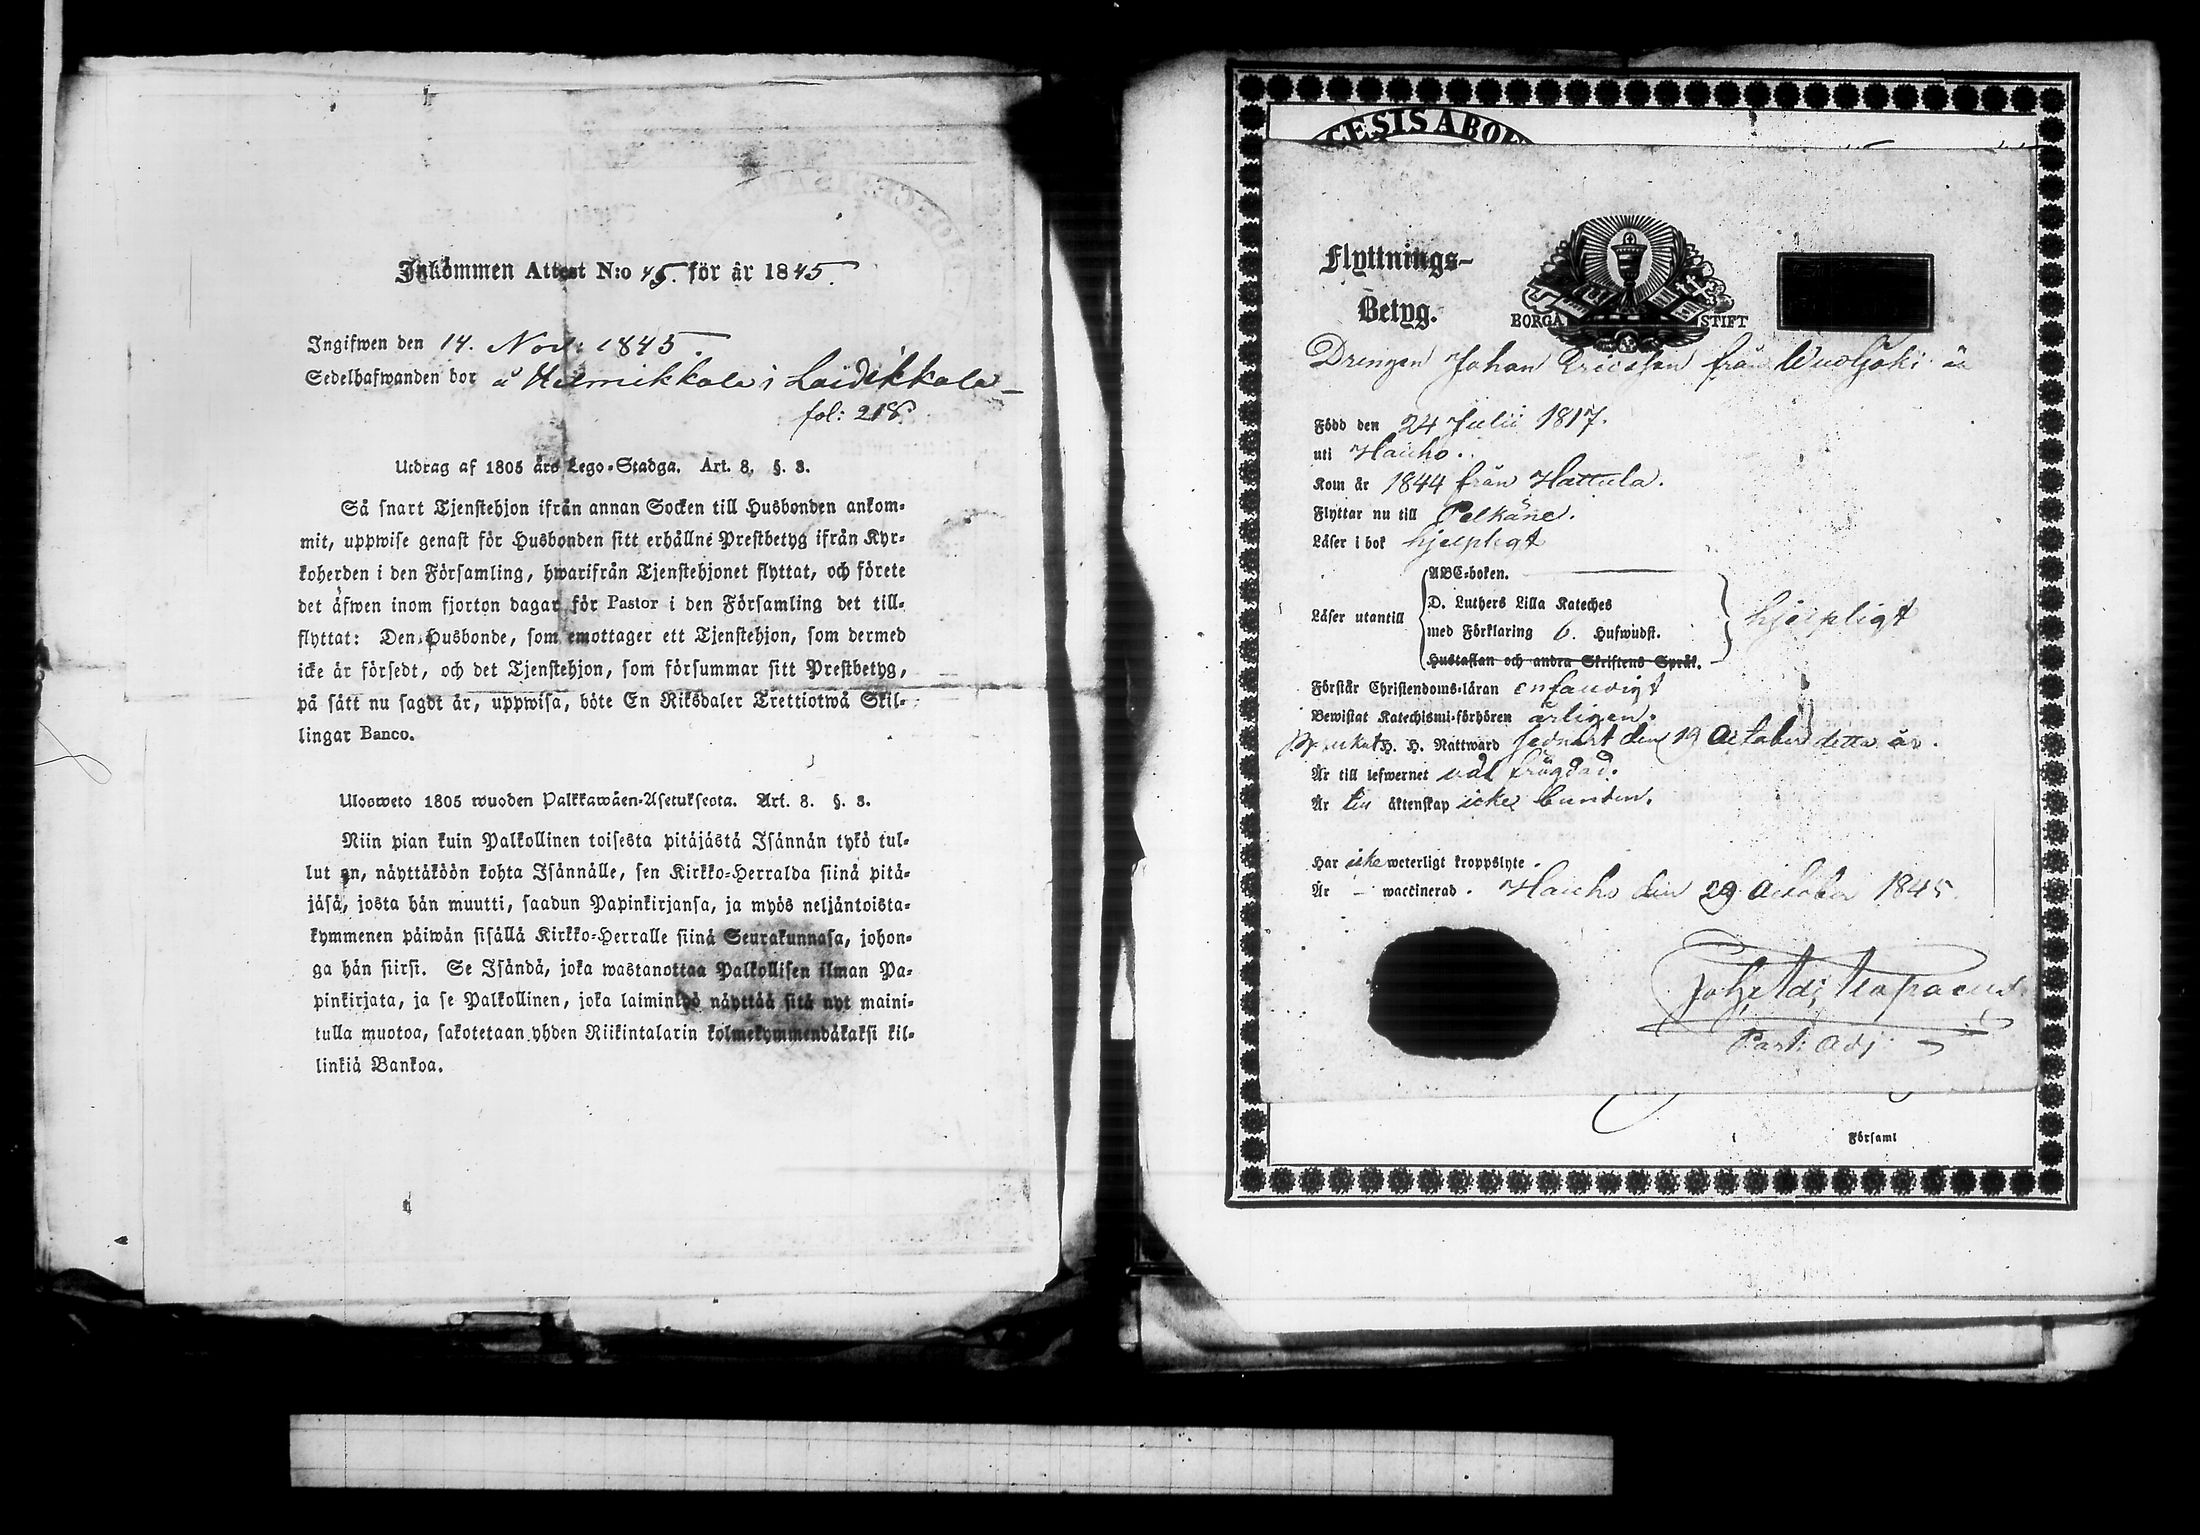 Inkommen Attest N:o 45. för år 1845.
Ingifwen den 14. Nov: 1845.
Sedelhafwanden bor å Helmikkala i Laidikkala
fol: 218.
Utdrag af 1805 års Lego-Stadga. Art. 8. §. 3.
Så snart Tjenstehjon ifrån annan Socken till Husbonden ankom-
mit, uppwise genast för Husbonden sitt erhållne Prestbetyg ifrån Kyr-
koherden i den Församling, hwarifrån Tjenstehjonet flyttat, och förete
det äfwen inom fjorton dagar för Pastor i den Församling det till-
flyttat: Den Husbonde, som emottager ett Tjenstehjon, som dermed
icke är försedt, och det Tjenstehjon, som försummar sitt Prestbetyg,
på sätt nu sagdt är, uppwisa, böte En Riksdaler Trettiotwå Skil-
lingar Banco.
Ulosweto 1805 wuoden Palkkawäen-Asetuksesta. Art. 8. §. 3.
Niin pian kuin Palkollinen toisesta pitäjästä Isännän tykö tul-
lut on, näyttäköön kohta Isännälle, sen Kirkko-Herralda siinä pitä-
jäsä, josta hän muutti, saadun Papinkirjansa, ja myös neljäntoista-
kymmenen päiwän sisällä Kirkko-Herralle siinä Seurakunnasa, johon-
ga hän siirsi. Se Isändä, joka wastanottaa Palkollisen ilman Pa-
pinkirjata, ja se Palkollinen, joka laiminlyö näyttää sitä nyt maini-
tulla muotoa, sakotetaan yhden Riikintalarin kolmekymmendäkaksi kil-
linkiä Bankoa.
CESIS ABOE
Flyttnings-
Betyg.
BORGÅ STIFT
Drengen Johan Ericsson från Wuoljoki är
Född den 24 Julii 1817.
uti Hauho.
Kom år 1844 från Hattula.
Flyttar nu till Pelkäne.
Läser i bok hjelpligt
ABC-boken.
Läser utantill D. Luthers Lilla Kateches
med Förklaring 6. Hufwudst. hjelpligt
Hustaflan och andra Skriftens Språk.
Förstår Christendoms-läran enfaldigt
Bewistat Katechismi-förhören årligen.
H. H. Nattward sednast den 19 October detta år.
Är till lefwernet wäl frägdad.
Är till äktenskap icke bunden.
Har icke weterligt kroppslyte.
Är – waccinerad. Hauho den 29 October 1845.
Past: Adj
Församl